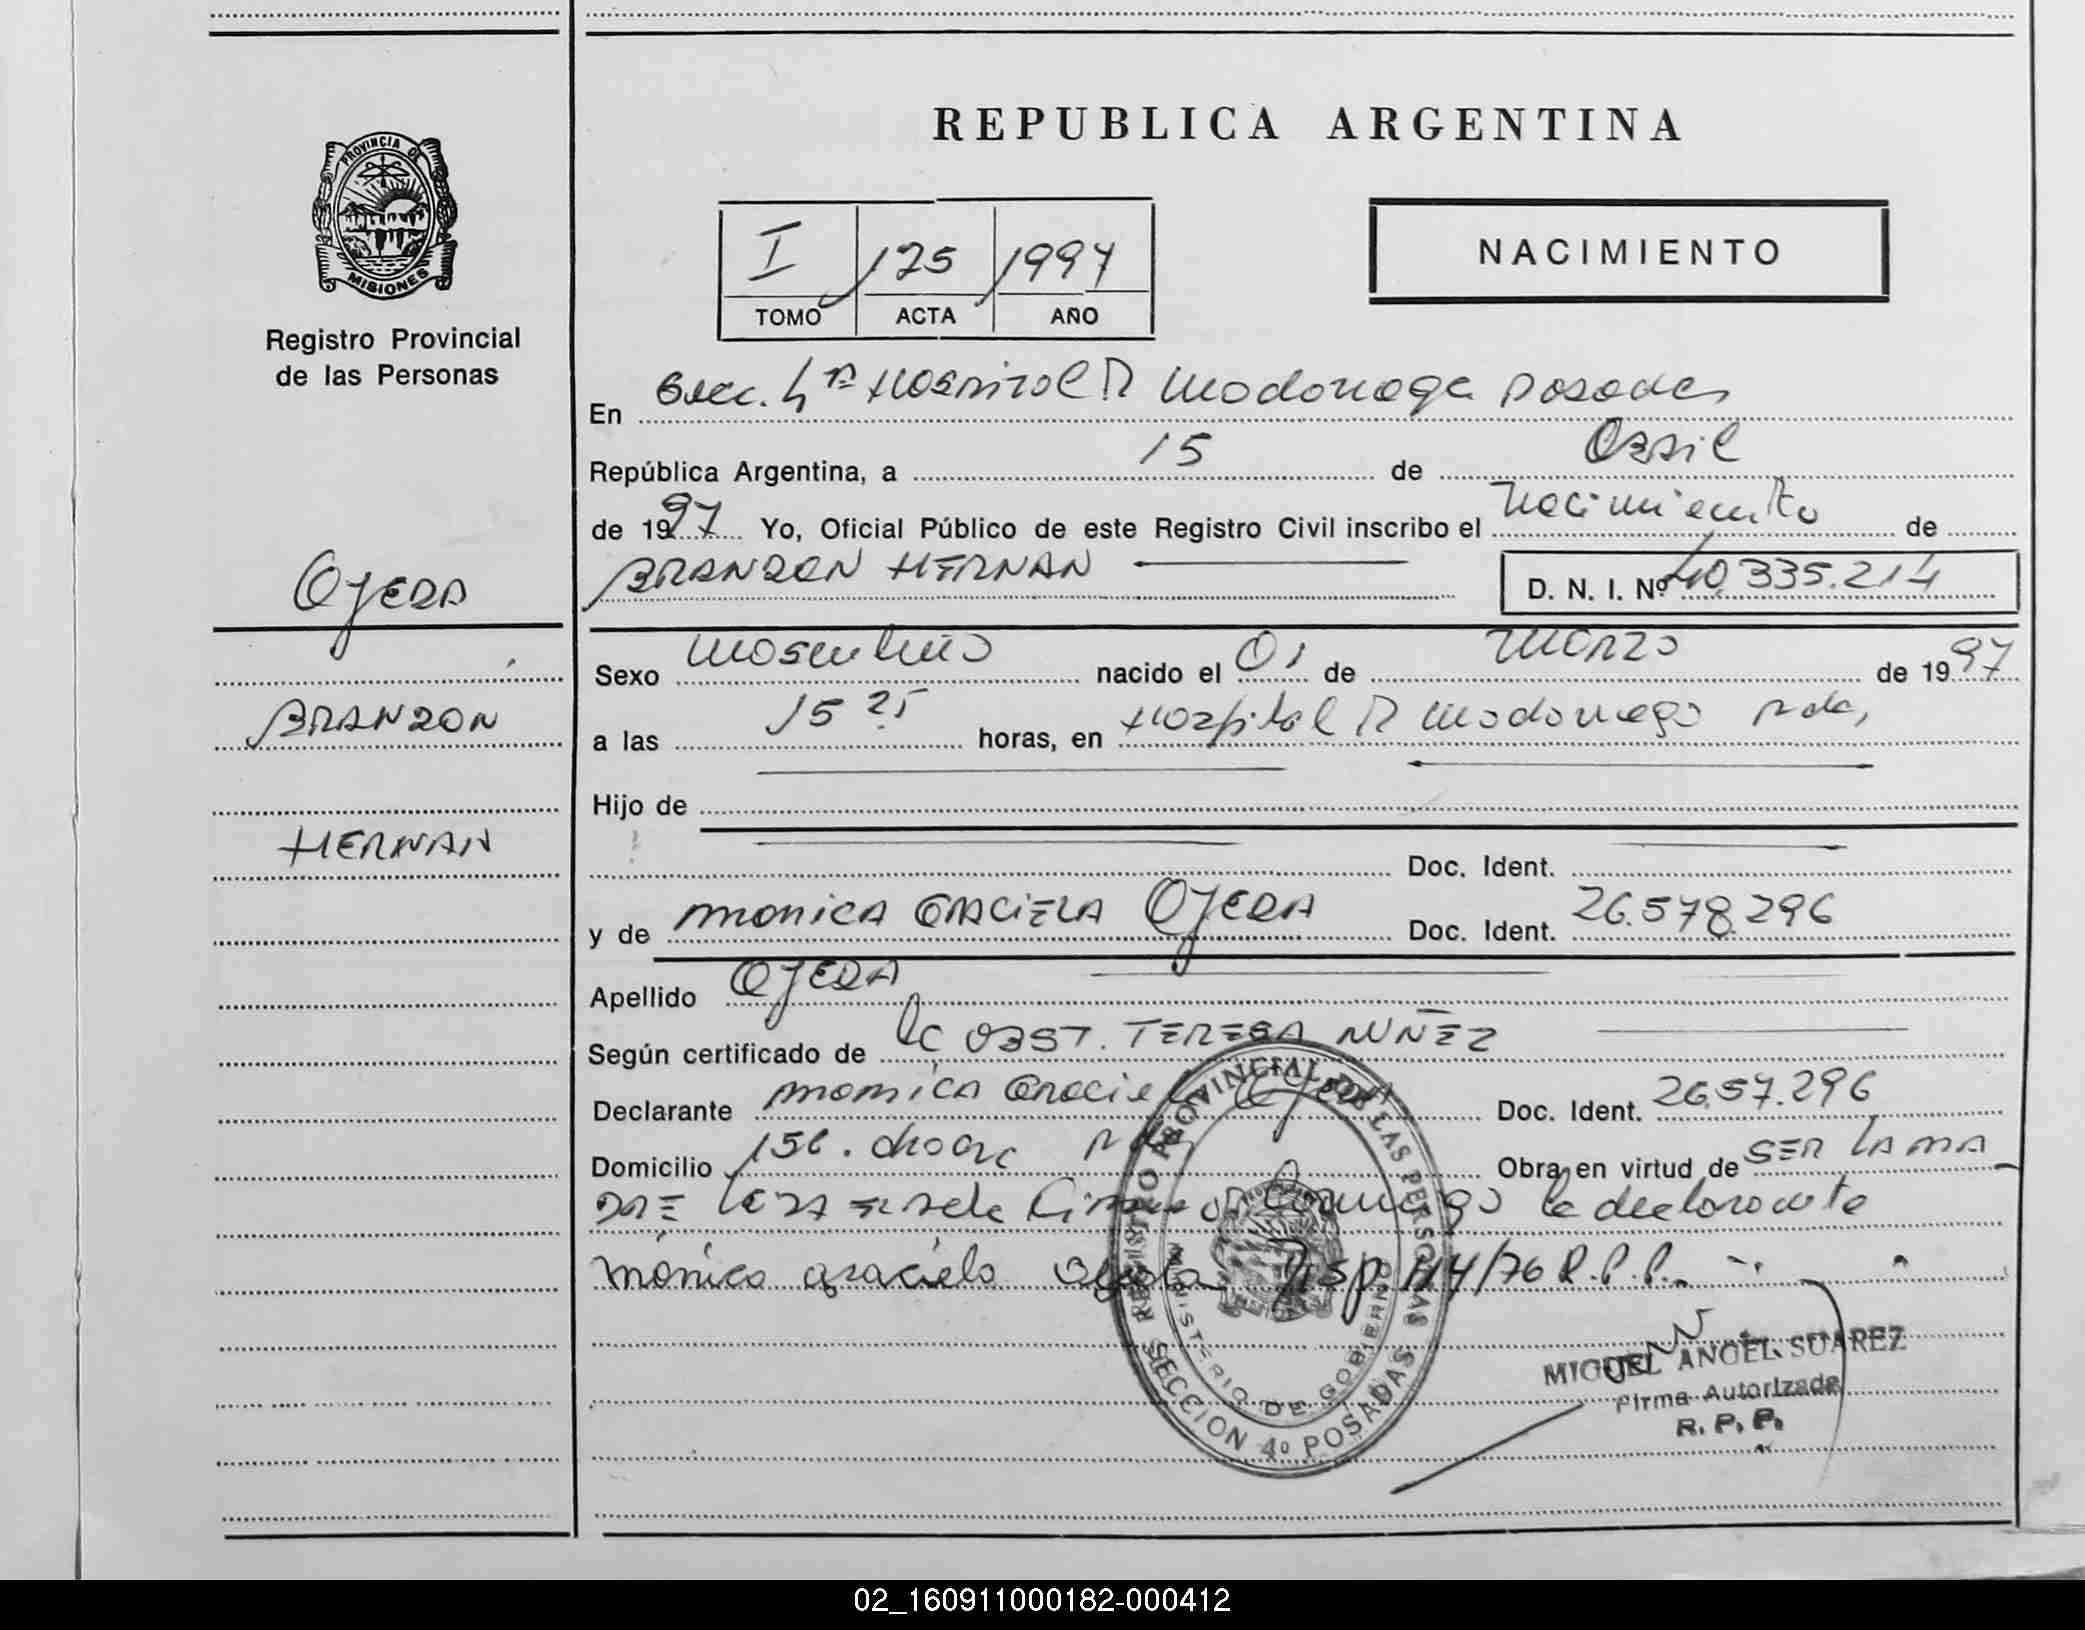 REPUBLICA ARGENTINA
PROVINCIA DE MISIONES
Registro Provincial
de las Personas
I 125 1997
TOMO ACTA AÑO
NACIMIENTO
En Secc. 4ta Hospital R Madariaga Posadas
República Argentina, a 15 de Abril
de 1997 Yo, Oficial Público de este Registro Civil inscribo el Nacimiento de
BRANDON HERNAN D. N. I. Nº 40.335.214
OJEDA
BRANDON
HERNAN
Sexo Masculino nacido el 01 de Marzo de 1997
a las 15 25 horas, en Hospital R Madariaga Pdas,
Hijo de
Doc. Ident.
y de MONICA GRACIELA OJEDA Doc. Ident. 26.578.296
Apellido OJEDA
Según certificado de la OBST. TERESA NUÑEZ
Declarante MONICA Graciela OJEDA Doc. Ident. 26.57.296
Domicilio 156. Pdas Obra en virtud de SER LA MA
DRE LEIDA el acta Firma Conmigo la declarante
Mónica Graciela Ojeda Disp 114/76 R.P.P.
REGISTRO PROVINCIAL DE LAS PERSONAS
MINISTERIO DE GOBIERNO
SECCION 4º POSADAS
MIGUEL ANGEL SUAREZ
Firma Autorizada
R. P. P.
02_160911000182-000412